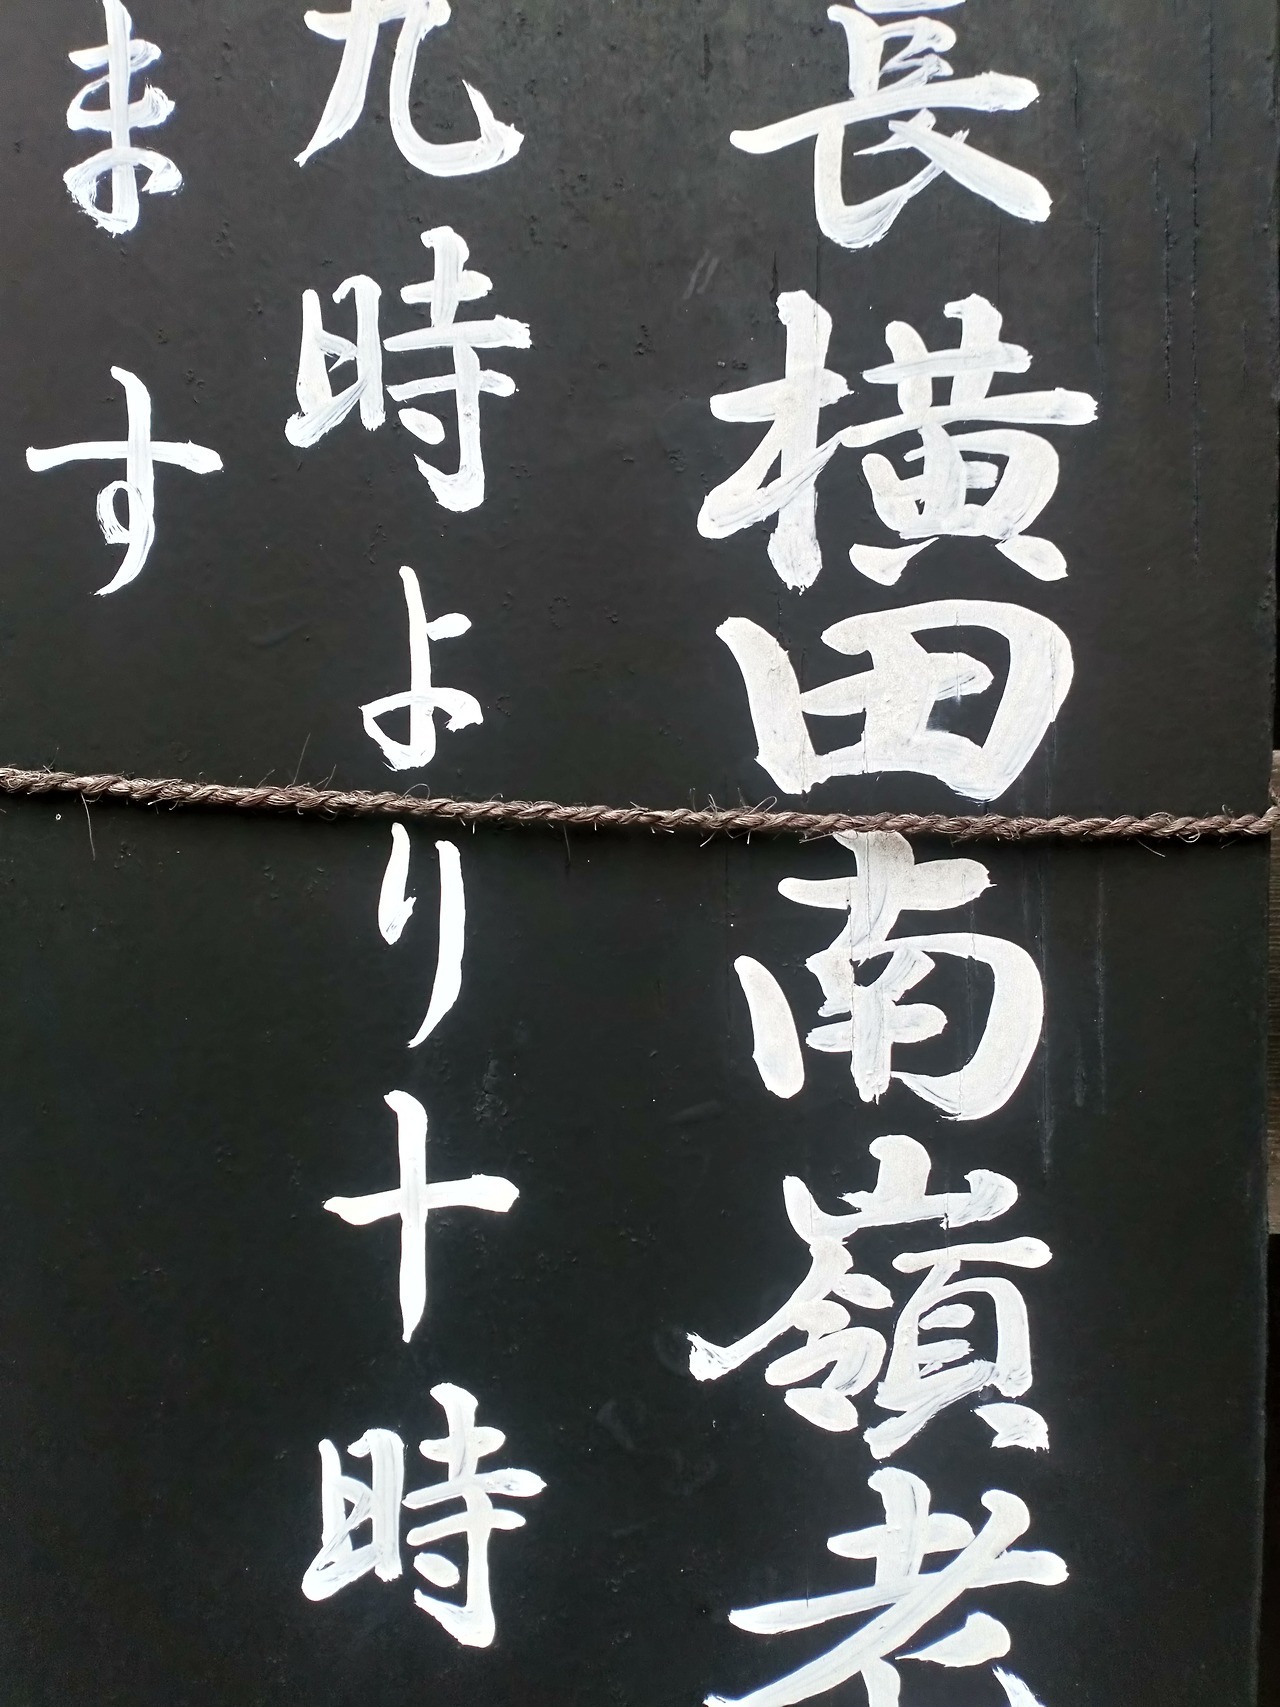 長横田南嶺老
九時より十時
ます